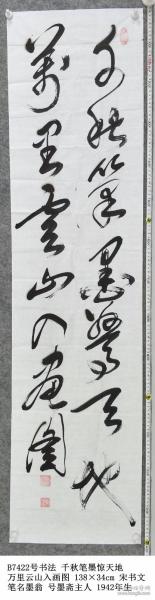 千秋笔墨惊天地
万里云山入画图
B7422号书法 千秋笔墨惊天地
万里云山入画图 138×34cm 宋书文
笔名墨翁 号墨斋主人 1942年生